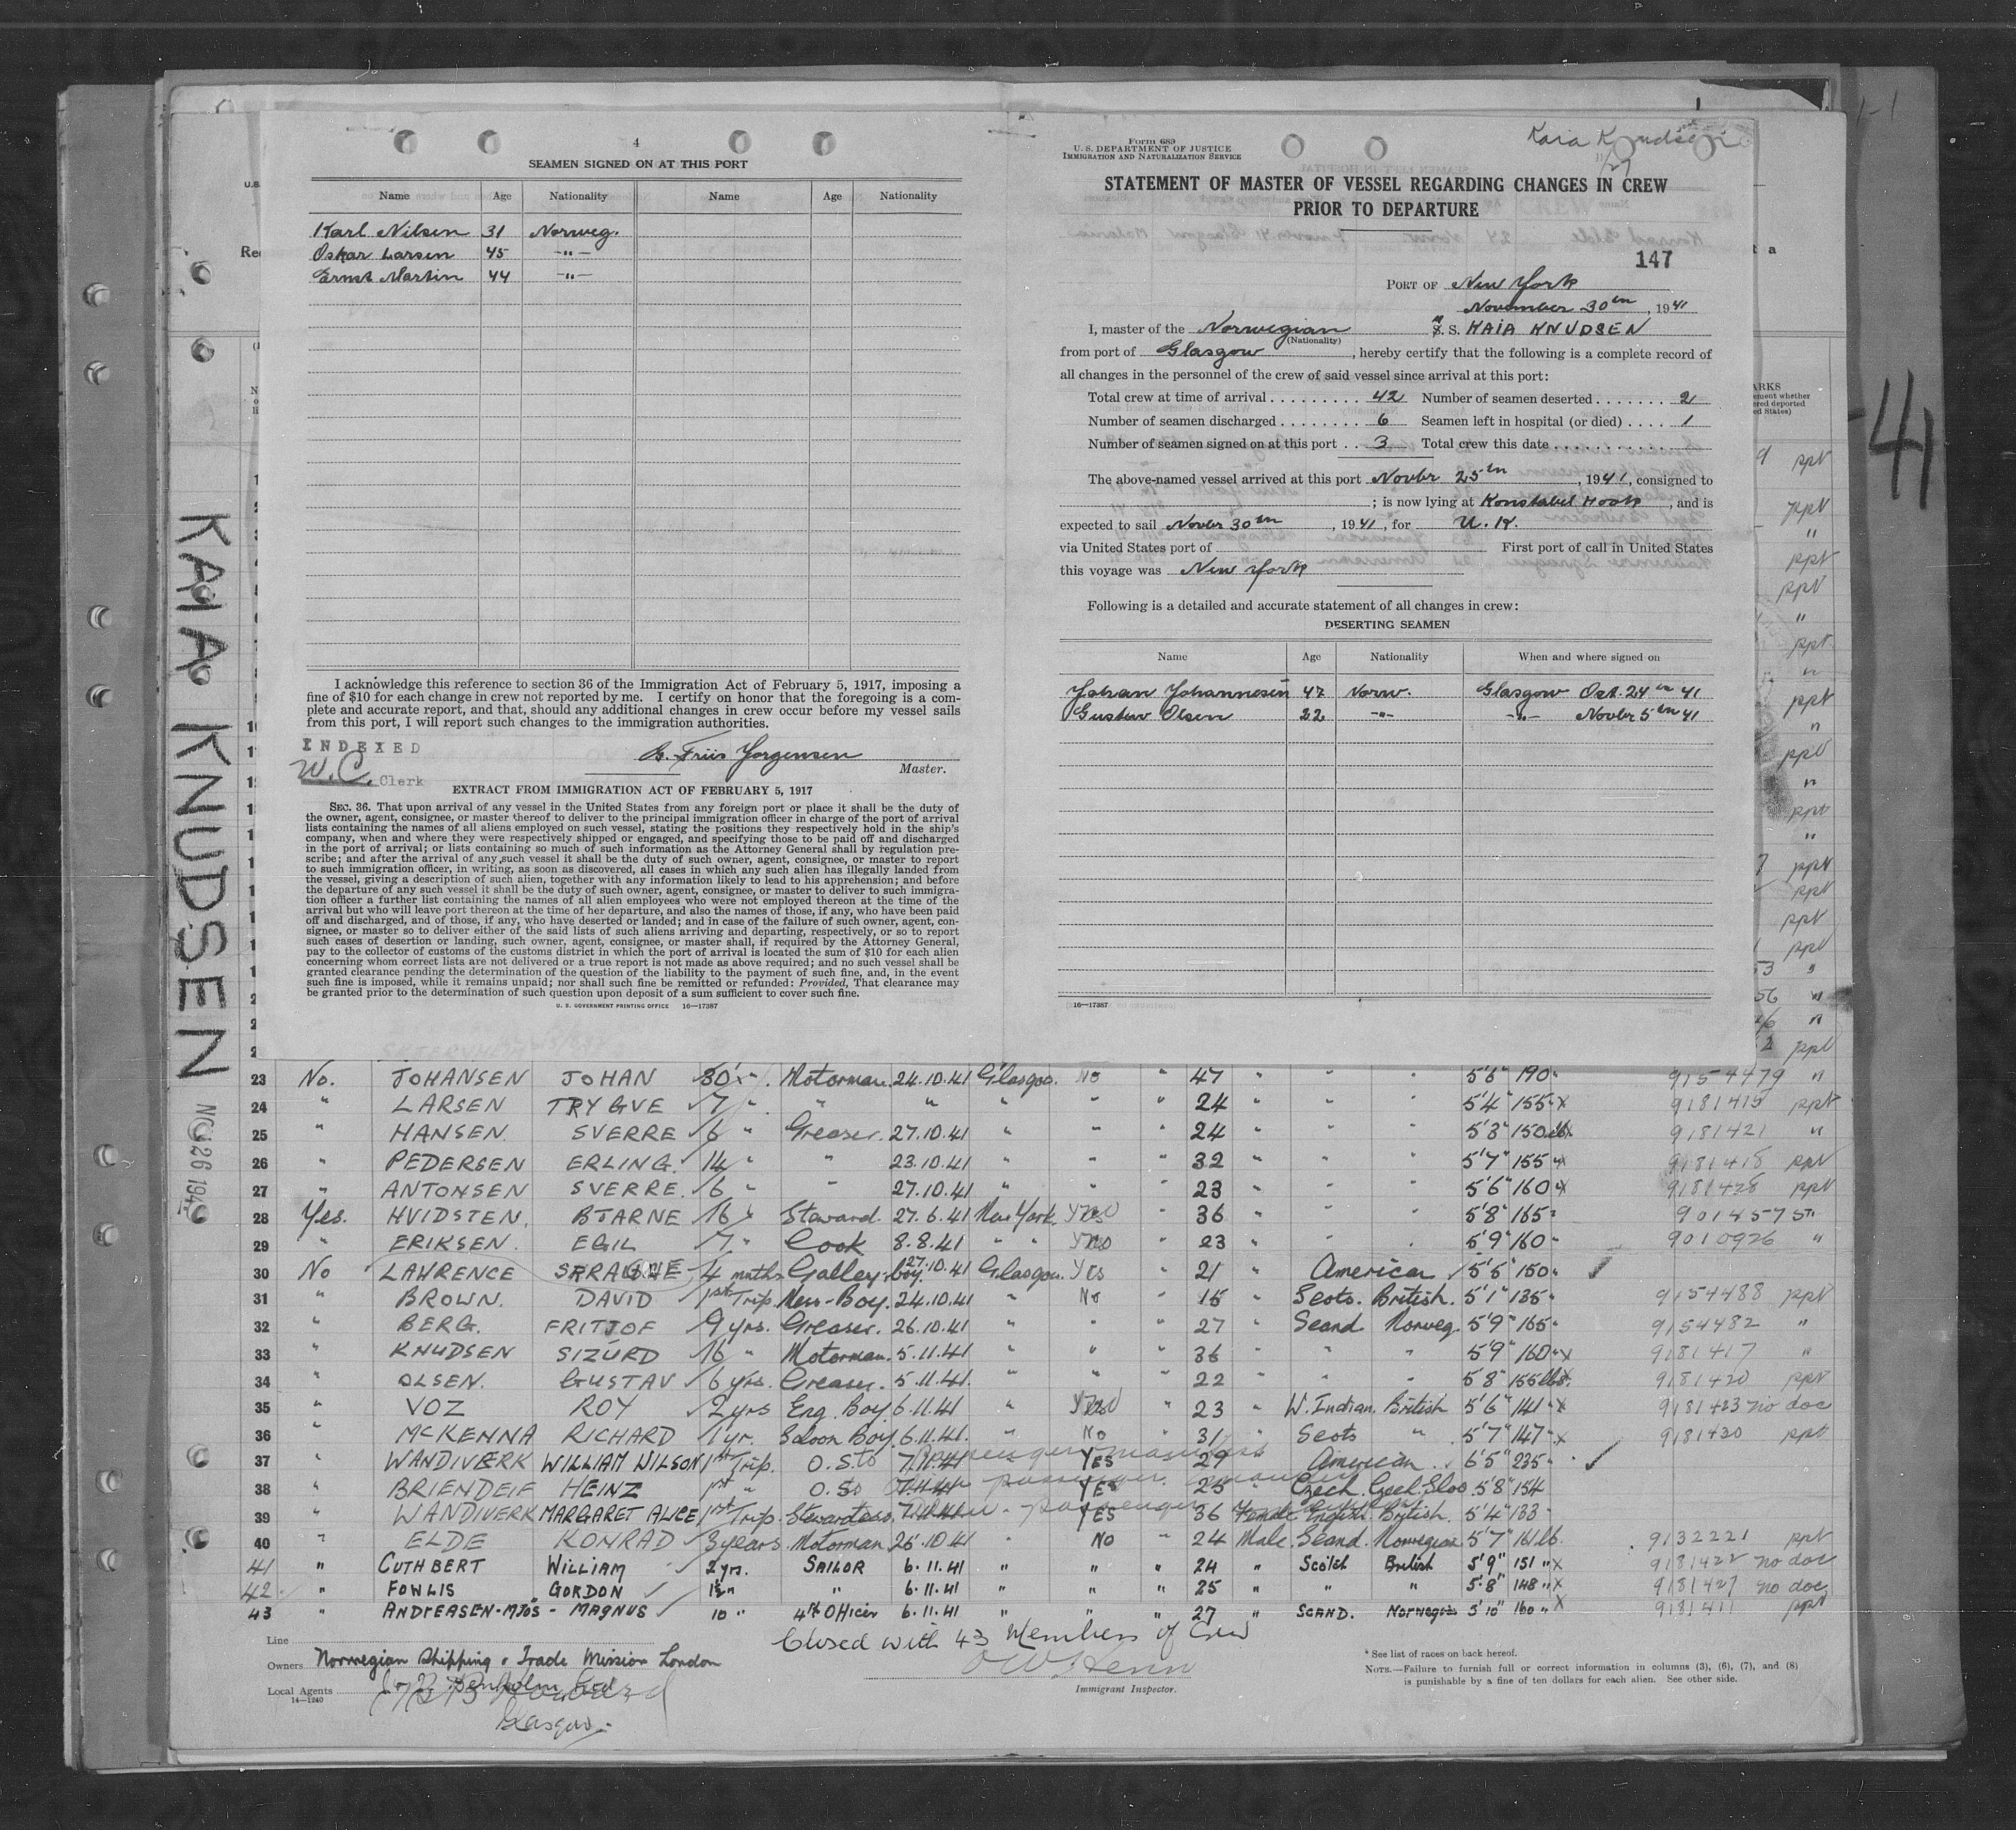 4
SEAMEN SIGNED ON AT THIS PORT
Name Age Nationality Name Age Nationality
Karl Nilsen 31 Norweg.
Oskar Larsen 45 -"-
Ernst Martin 44 -"-
I acknowledge this reference to section 36 of the Immigration Act of February 5, 1917, imposing a
fine of $10 for each change in crew not reported by me. I certify on honor that the foregoing is a com-
plete and accurate report, and that, should any additional changes in crew occur before my vessel sails
from this port, I will report such changes to the immigration authorities.
INDEXED
W.C. Clerk
Friis Jorgensen
Master.
EXTRACT FROM IMMIGRATION ACT OF FEBRUARY 5, 1917
SEC. 36. That upon arrival of any vessel in the United States from any foreign port or place it shall be the duty of
the owner, agent, consignee, or master thereof to deliver to the principal immigration officer in charge of the port of arrival
lists containing the names of all aliens employed on such vessel, stating the positions they respectively hold in the ship's
company, when and where they were respectively shipped or engaged, and specifying those to be paid off and discharged
in the port of arrival; or lists containing so much of such information as the Attorney General shall by regulation pre-
scribe; and after the arrival of any such vessel it shall be the duty of such owner, agent, consignee, or master to report
to such immigration officer, in writing, as soon as discovered, all cases in which any such alien has illegally landed from
the vessel, giving a description of such alien, together with any information likely to lead to his apprehension; and before
the departure of any such vessel it shall be the duty of such owner, agent, consignee, or master to deliver to such immigra-
tion officer a further list containing the names of all alien employees who were not employed thereon at the time of the
arrival but who will leave port thereon at the time of her departure, and also the names of those, if any, who have been paid
off and discharged, and of those, if any, who have deserted or landed; and in case of the failure of such owner, agent, con-
signee, or master so to deliver either of the said lists of such aliens arriving and departing, respectively, or so to report
such cases of desertion or landing, such owner, agent, consignee, or master shall, if required by the Attorney General,
pay to the collector of customs of the customs district in which the port of arrival is located the sum of $10 for each alien
concerning whom correct lists are not delivered or a true report is not made as above required; and no such vessel shall be
granted clearance pending the determination of the question of the liability to the payment of such fine, and, in the event
such fine is imposed, while it remains unpaid; nor shall such fine be remitted or refunded: Provided, That clearance may
be granted prior to the determination of such question upon deposit of a sum sufficient to cover such fine.
U. S. GOVERNMENT PRINTING OFFICE 16—17387
Form 689
U. S. DEPARTMENT OF JUSTICE
IMMIGRATION AND NATURALIZATION SERVICE
Kaia Knudsen
STATEMENT OF MASTER OF VESSEL REGARDING CHANGES IN CREW
PRIOR TO DEPARTURE
147
PORT OF New York
November 30th, 1941
I, master of the Norwegian S. KAIA KNUDSEN
(Nationality)
from port of Glasgow, hereby certify that the following is a complete record of
all changes in the personnel of the crew of said vessel since arrival at this port:
Total crew at time of arrival 42 Number of seamen deserted 2
Number of seamen discharged 6 Seamen left in hospital (or died) 1
Number of seamen signed on at this port 3 Total crew this date
The above-named vessel arrived at this port Novbr 25th, 1941, consigned to
; is now lying at Konstabel Hook, and is
expected to sail Novbr 30th, 1941, for U. K.
via United States port of First port of call in United States
this voyage was New York
Following is a detailed and accurate statement of all changes in crew:
DESERTING SEAMEN
Name Age Nationality When and where signed on
Johan Johannesen 47 Norw. Glasgow Oct. 24th 41
Gustav Olsen 22 -"- -"- Novbr 5th 41
16—17387
KAIA KNUDSEN
41
23 No. JOHANSEN JOHAN 30 " Motorman 24.10.41 Glasgow. No " 47 " " " 5'6" 190 " 9154479 "
24 " LARSEN TRYGVE 7 " " " " " " 24 " " " 5'4" 155 " x 9181415 ppt
25 " HANSEN. SVERRE 6 " Greaser. 27.10.41 " " " 24 " " " 5'3" 150 lbs. 9181421 "
26 " PEDERSEN ERLING. 14 " " 23.10.41 " " 32 " " " 5'7" 155 " x 9181418 ppt
27 " ANTONSEN SVERRE. 6 " " 27.10.41 " " " 23 " " " 5'6" 160 " x 9181428 ppt
28 Yes. HVIDSTEN. BJARNE 16 " Steward. 27.6.41 New York. Yes " 36 " " " 5'8" 165 " 9014575
29 " ERIKSEN. EGIL 7 " Cook 8.8.41 " " 23 " " " 5'9" 160 " 9010926 "
30 No LAWRENCE SPRAGUE 4 mnths Galley-boy 27.10.41 Glasgow. Yes " 21 " American 5'5" 150 "
31 " BROWN. DAVID 1st Trip. Mess-Boy. 24.10.41 " No " 15 " Scots. British. 5'1" 135 " 9154488 ppt
32 " BERG. FRITJOF 9 yrs. Greaser. 26.10.41 " " " 27 " Scand Norweg. 5'9" 165 " 9154482 "
33 " KNUDSEN SIZURD 16 " Motorman. 5.11.41 " " " 36 " " " 5'9" 160 " x 9181417 "
34 " OLSEN. GUSTAV 6 yrs. Greaser. 5.11.41. " " " 22 " " " 5'8" 155 lbs. 9181420 ppt
35 " VOZ ROY 2 yrs Eng. Boy. 6.11.41 " Yes " 23 " W. Indian. British 5'6" 141 " x 9181423 no doc
36 " MCKENNA RICHARD 1 yr. Saloon Boy. 6.11.41. " No " 31 " Scots " 5'7" 147 " x 9181430 ppt
37 " WANDIVERK WILLIAM WILSON 1st Trip. O.S. 7.11.41 passenger manifest YES 29 American. 6'5" 235 "
38 " BRIENDEIF HEINZ 1st " O.S. 7.11.41 passenger YES 25 Czech. Czech.Slov. 5'8" 154
39 " WANDIVERK MARGARET ALICE 1st Trip. Stewardess. 7.11.41 passenger YES 36 Female English. British. 5'4" 133
40 " ELDE KONRAD 3 years. Motorman 25.10.41 " NO " 24 Male. Scand. Norwegian 5'7" 161 lb. 9132221 ppt
41 " CUTHBERT WILLIAM 2 yrs. SAILOR 6.11.41 " " " 24 " Scotch British 5'9" 151 " x 9181422 no doc
42 " FOWLIS GORDON 1½ " " 6.11.41 " " " 25 " " " 5'8" 148 " x 9181427 no doc
43 " ANDREASEN-MJÖS - MAGNUS 10 " 4th Officer 6.11.41 " " " 27 " SCAND. Norwegian 5'10" 160 " x 9181411 ppt
Closed with 43 Members of Crew
Line
Owners Norwegian Shipping & Trade Mission London
Local Agents J. & J. Denholm Ltd
14—1240
Glasgow.
Immigrant Inspector.
* See list of races on back hereof.
NOTE.—Failure to furnish full or correct information in columns (3), (6), (7), and (8)
is punishable by a fine of ten dollars for each alien. See other side.